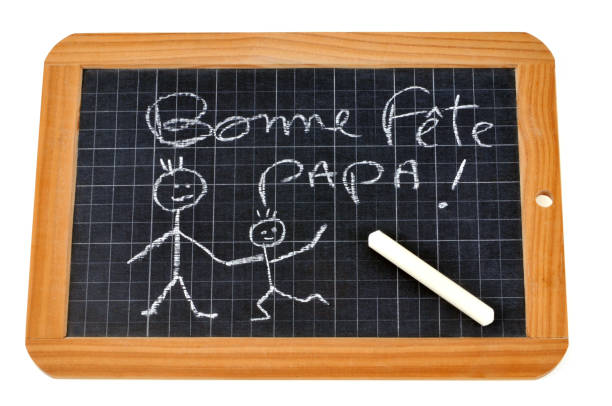 Bonne Fête
PAPA !